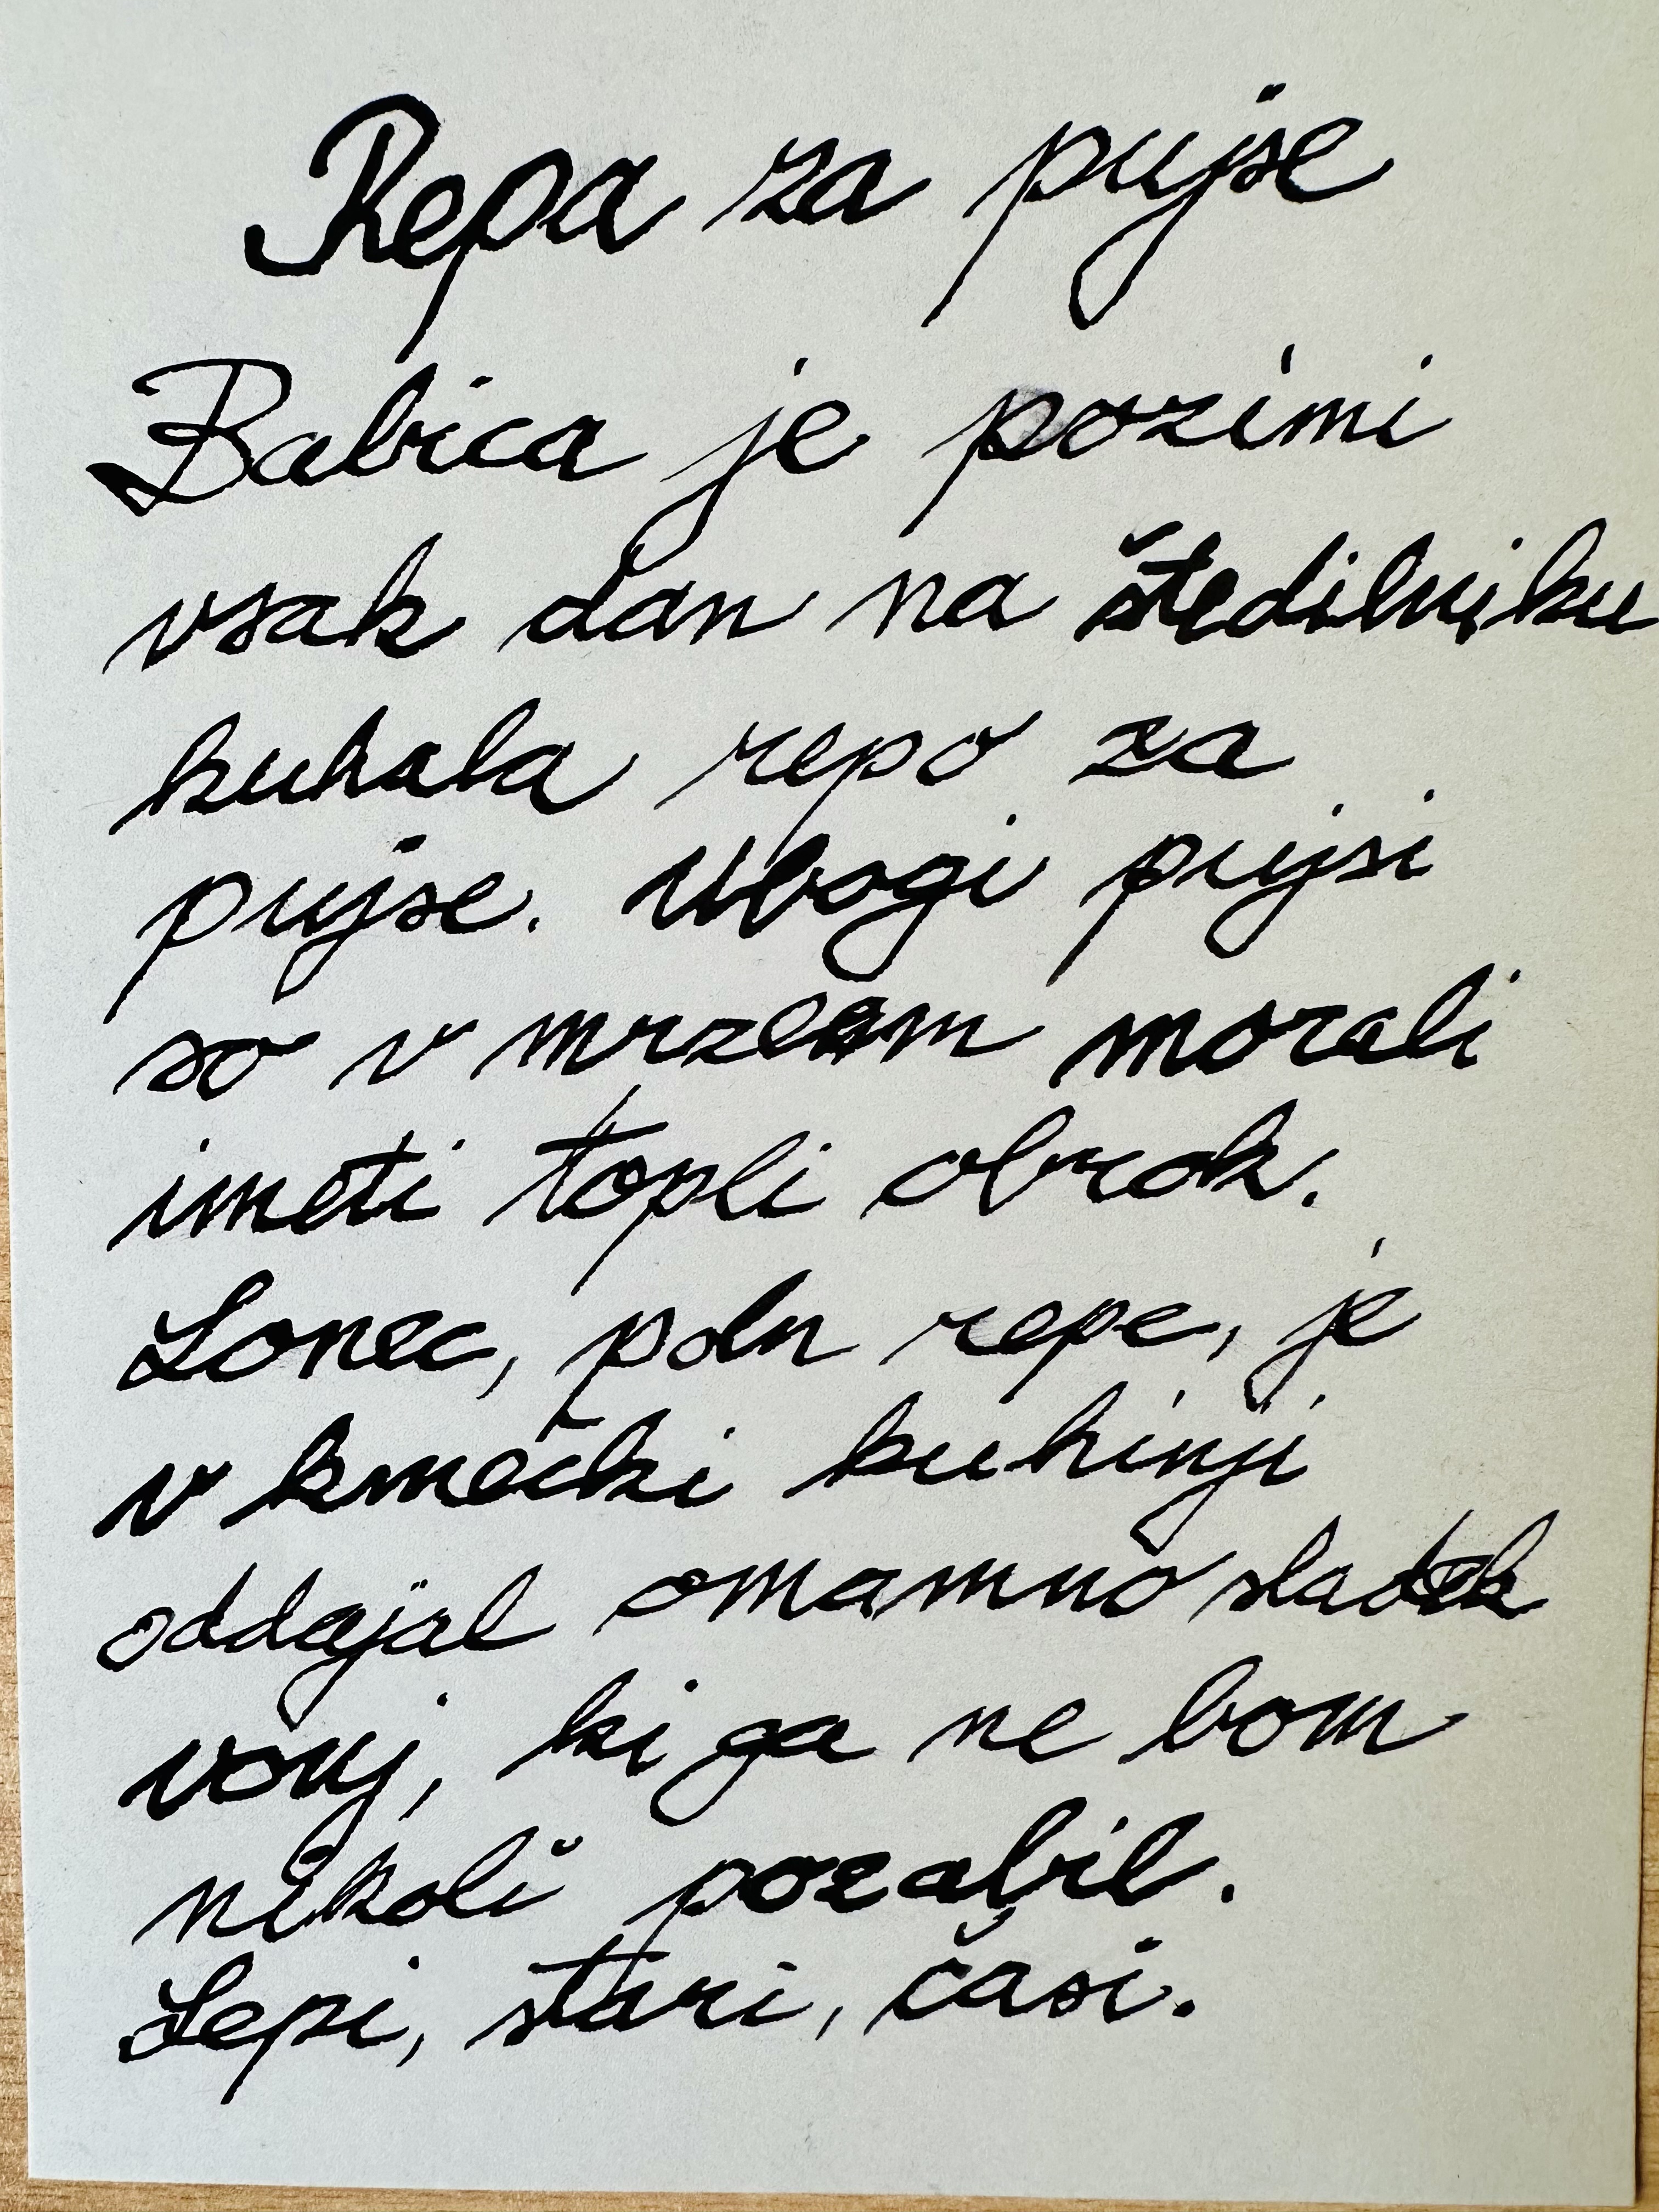 Repa za pujse
Babica je pozimi
vsak dan na štedilniku
kuhala repo za
pujse. Ubogi pujsi
so v mrzlem morali
imeti topli obrok.
Lonec, poln repe, je
v kmečki kuhinji
oddajal omamno sladek
vonj, ki ga ne bom
nikoli pozabil.
Lepi, stari, časi.